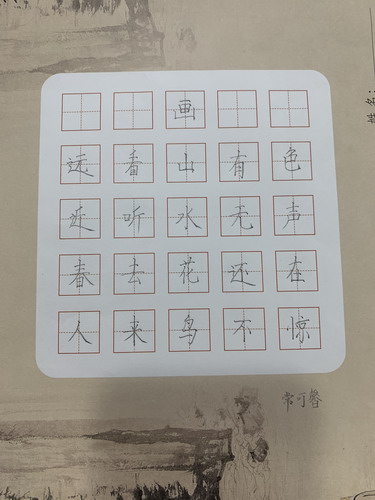 画
远看山有色
近听水无声
春去花还在
人来鸟不惊
常可馨
姓名：